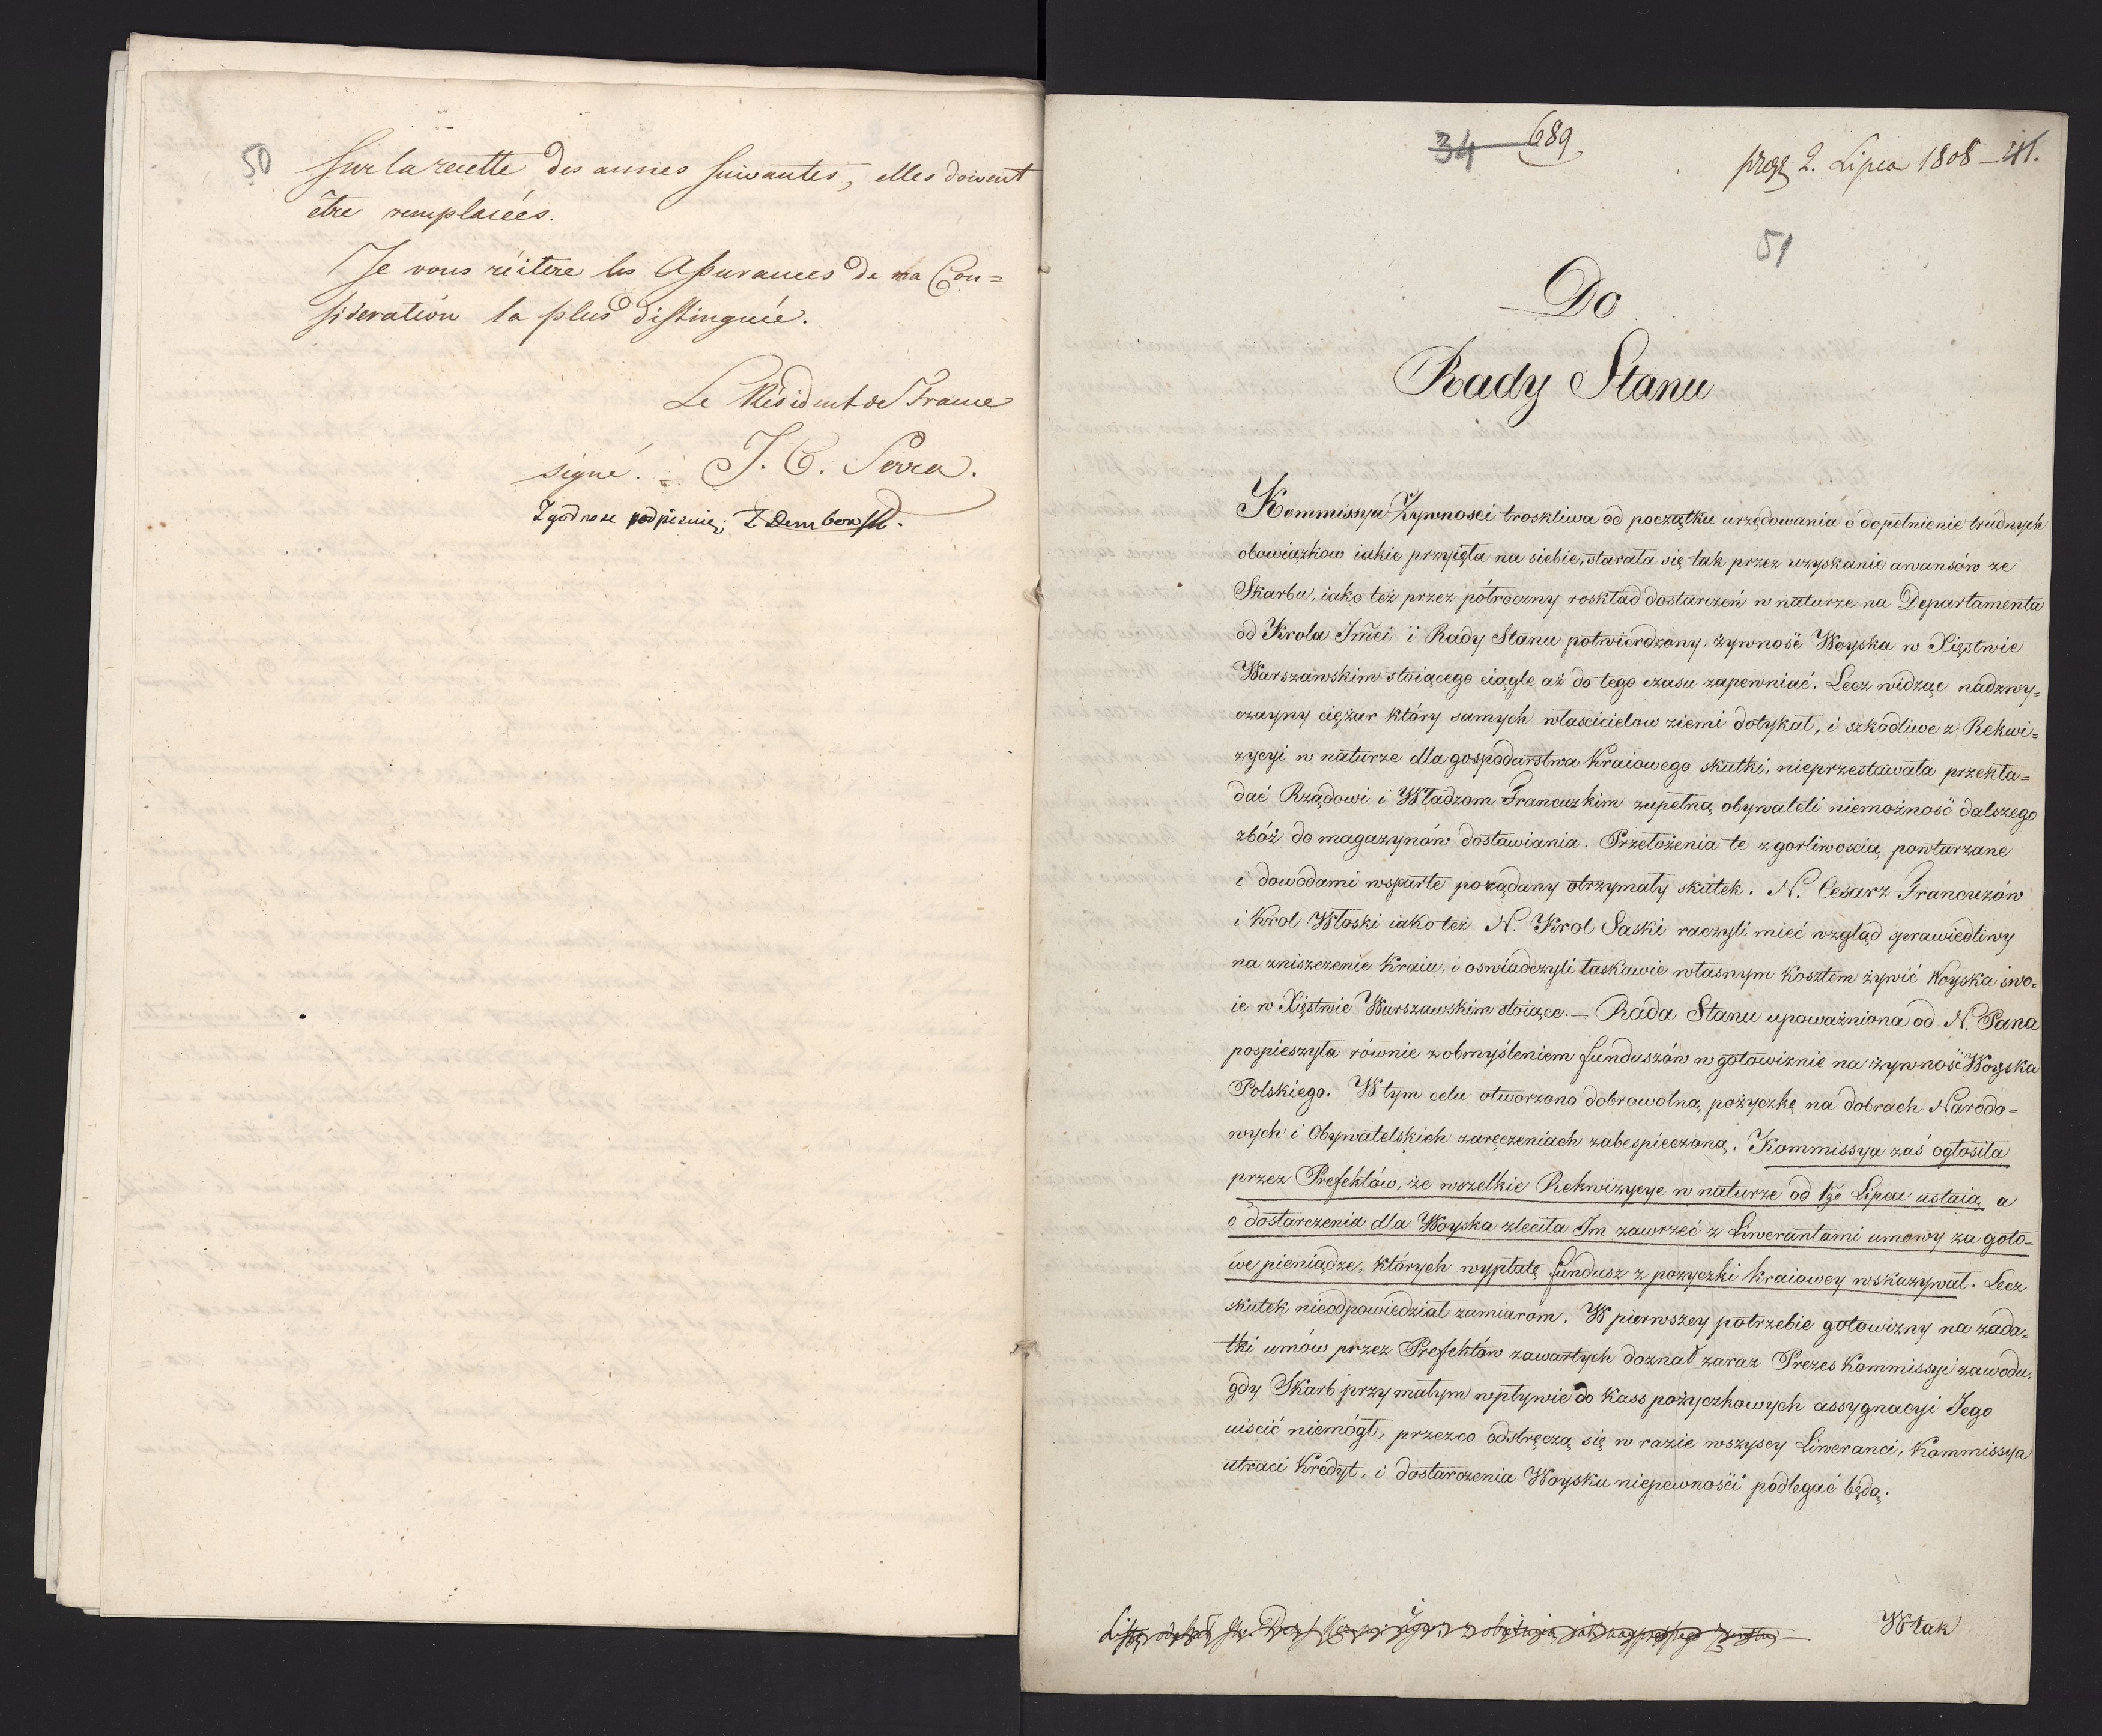 50
Sur la recette des années suivantes, elles doivent
être remplacées.
Je vous réitere les Assurances de ma Con=
sideration la plus distinguée.
Le Résident de France
signé. J. C. Serra.
Zgodnosc podpisuię; I Dembowski.
34 689
2. Lipca 1808 — 41.
51
Do
Rady Stanu
Kommissya Zywnosci troskliwa od początku urzędowania o dopełnienie trudnych
obowiązkow iakie przyięła na siebie, starała się tak przez uzyskanie awansów ze
Skarbu, iako też przez półroczny roskład dostarczeń w naturze na Departamenta
od Krola Jmci i Rady Stanu potwierdzony, żywność Woyska w Xięstwie
Warszawskim stoiącego ciągle aż do tego czasu zapewniać. Lecz widząc nadzwy=
czayny ciężar który samych własciciélow ziemi dotykał, i szkodliwe z Rekwi=
zycyi w naturze dla gospodarstwa Kraiowego skutki, nieprzestawała przekła=
dać Rządowi i Władzom Francuzkim zupełną obywateli niemożność dalszego
zbóż do magazynów dostawiania. Przełożenia te z gorliwoscią powtarzane
i dowodami wsparte porządany otrzymały skutek. N. Cesarz Francuzów
i Krol Włoski iako też N. Krol Saski raczyli mieć wzgląd sprawiedliwy
na zniszczenie Kraiu, i oswiadczyli łaskawie własnym kosztem żywić Woyska swo=
ie w Xięstwie Warszawskim stoiące. — Rada Stanu upoważniona od N. Pana
pospieszyła równie z obmyśleniem funduszów w gotowiznie na żywność Woyska
Polskiego. W tym celu otworzono dobrowolną pożyczkę na dobrach Narodo=
wych i Obywatelskich zaręczeniach zabespieczoną. Kommissya zaś ogłosiła
przez Prefektów, że wszelkie Rekwizycye w naturze od 1go Lipca ustaią a
o dostarczenia dla Woyska zleciła Im zawrzeć z Liwerantami umowy za goto=
we pieniądze, których wypłatę fundusz z pozyczki kraiowey wskazywał. Lecz
skutek nieodpowiedział zamiarom. W pierwszey potrzebie gotowizny na zada=
tki umów przez Prefektów zawartych doznał zaraz Prezes Kommissyi zawodu,
gdy Skarb przy małym wpływie do Kass pożyczkowych assygnacyi Jego
uiścić niemógł, przezco odstręczą się w razie wszyscy Liweranci, Kommissya
utraci Kredyt, i dostarczenia Woysku niepewności podlegać będą.
W tak